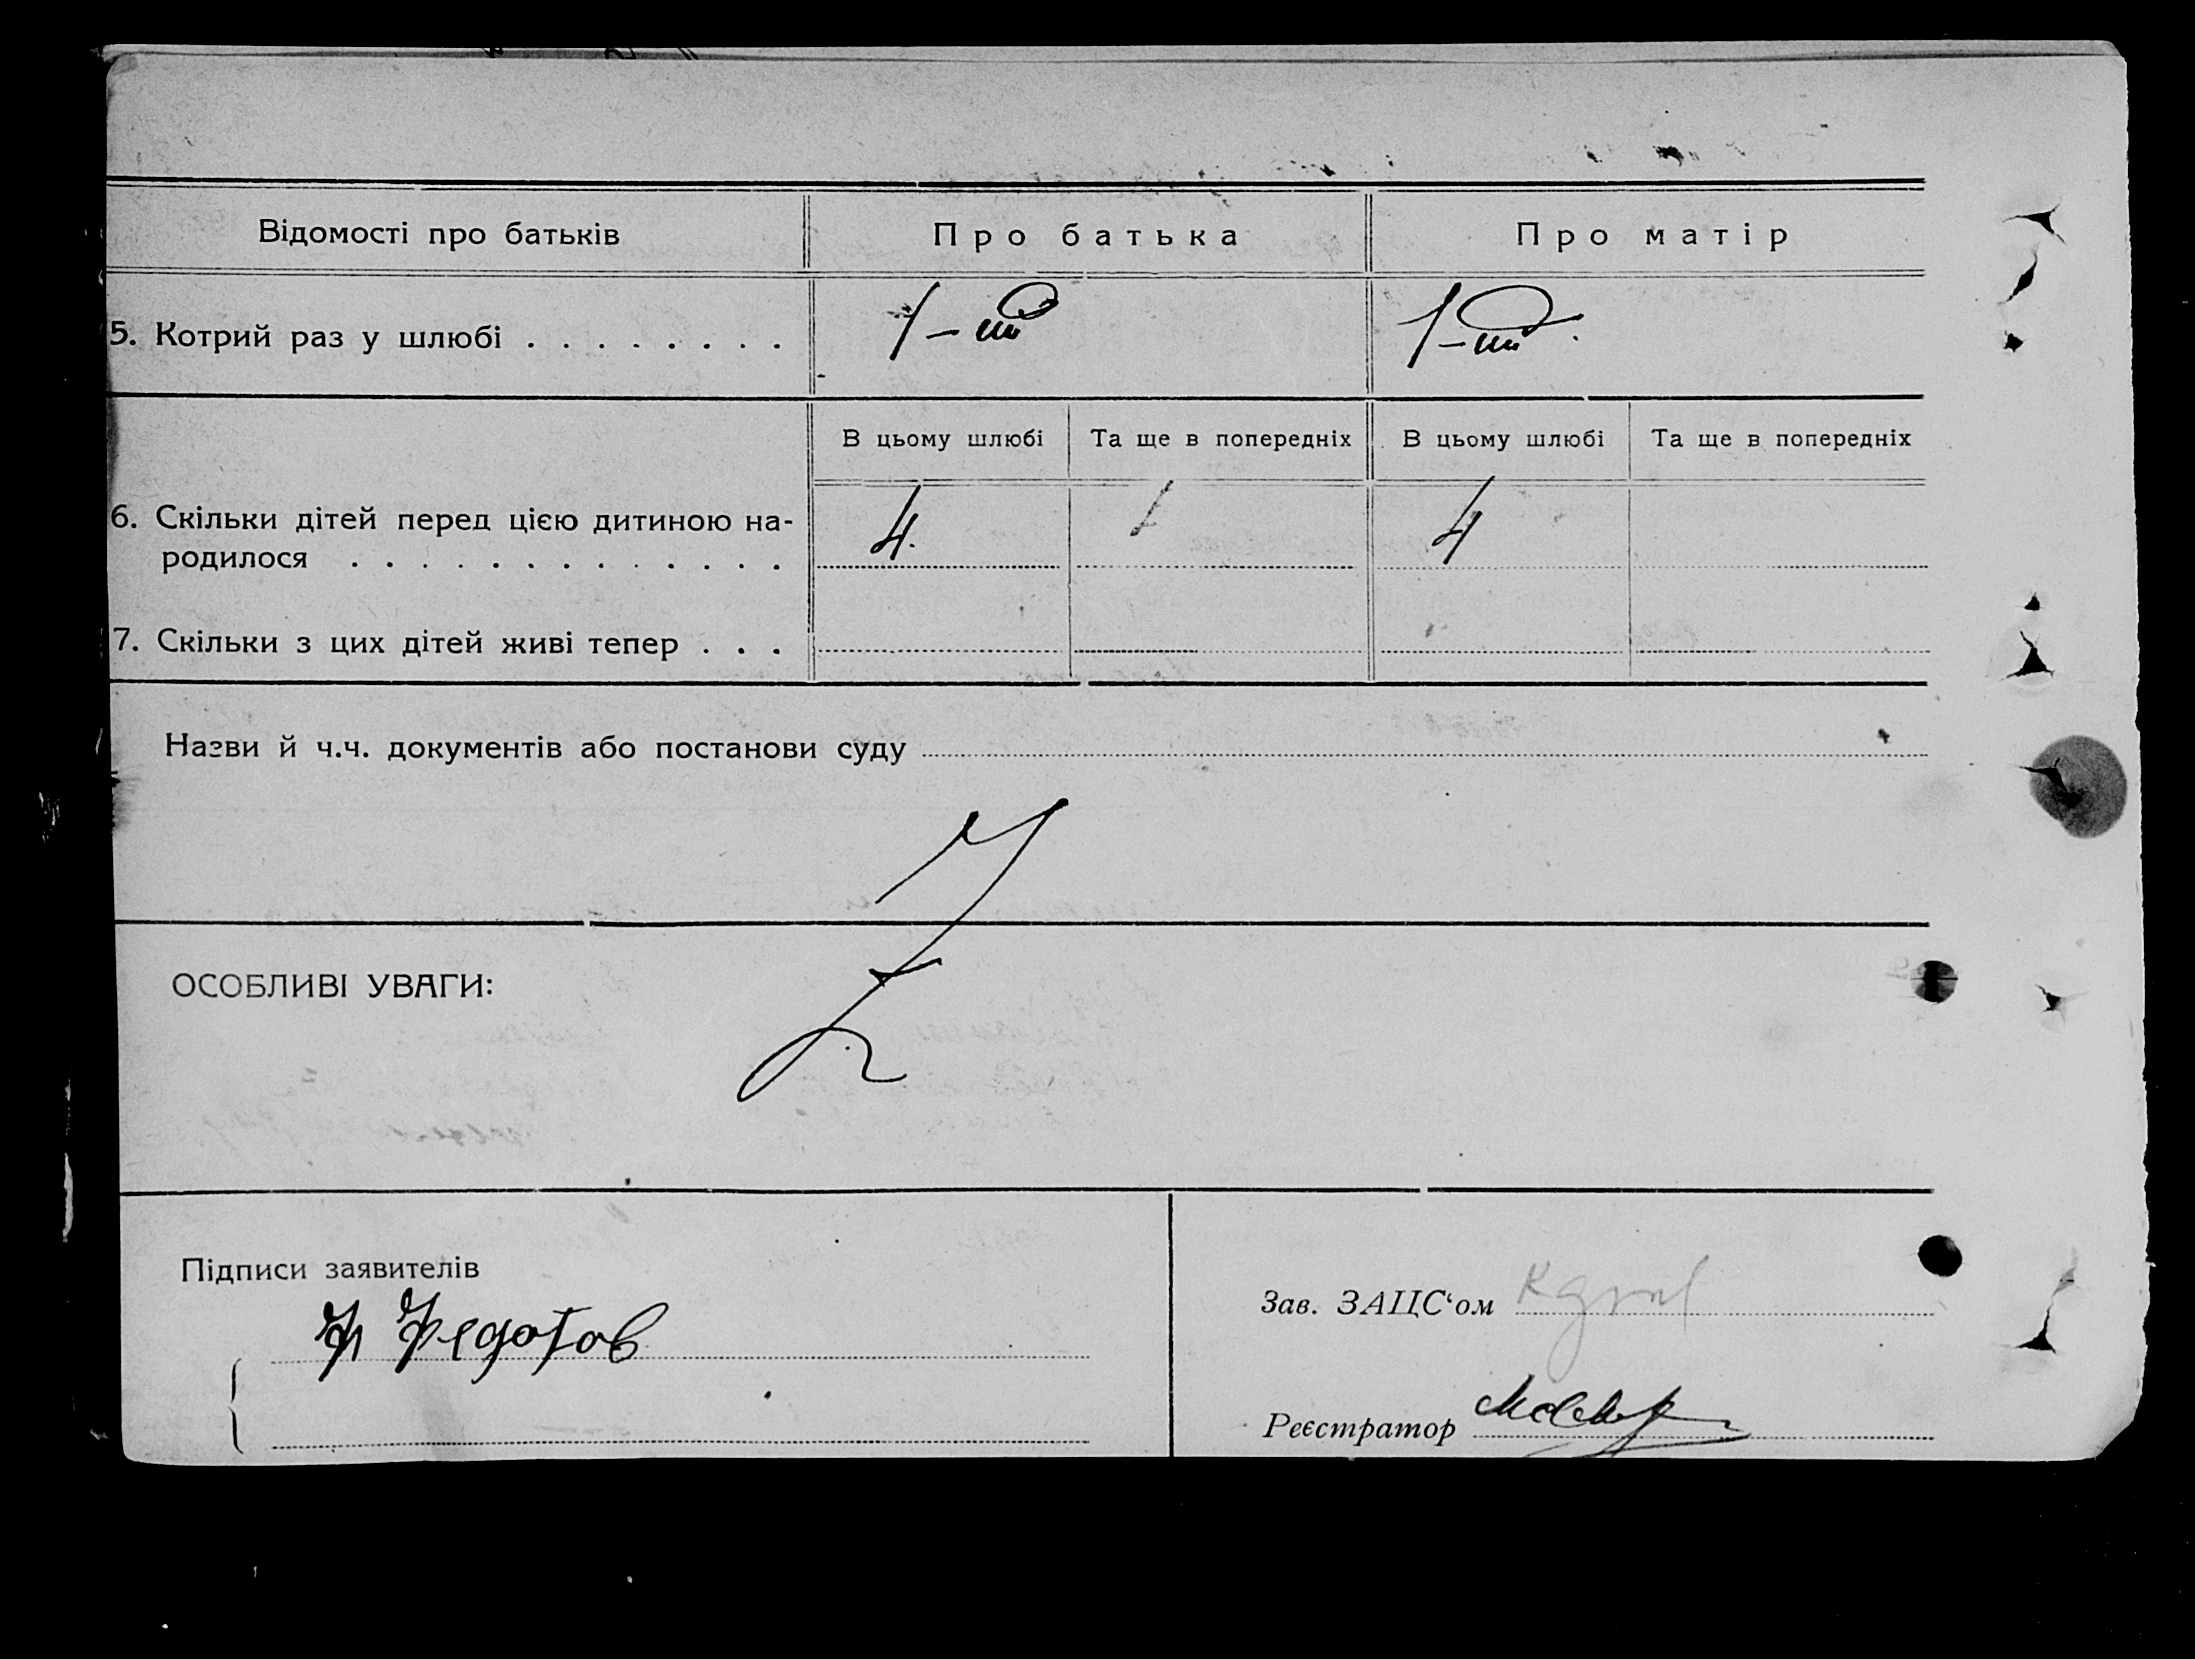 Відомості про батьків
Про батька
Про матір
5. Котрий раз у шлюбі . . . . . . . .
1-ий
1-ий.
В цьому шлюбі
Та ще в попередніх
В цьому шлюбі
Та ще в попередніх
6. Скільки дітей перед цією дитиною на-
родилося . . . . . . . . . . . . .
4.
4
7. Скільки з цих дітей живі тепер . . .
Назви й ч.ч. документів або постанови суду
ОСОБЛИВІ УВАГИ:
Підписи заявителів
Федотов
Зав. ЗАЦС‘ом
Реєстратор